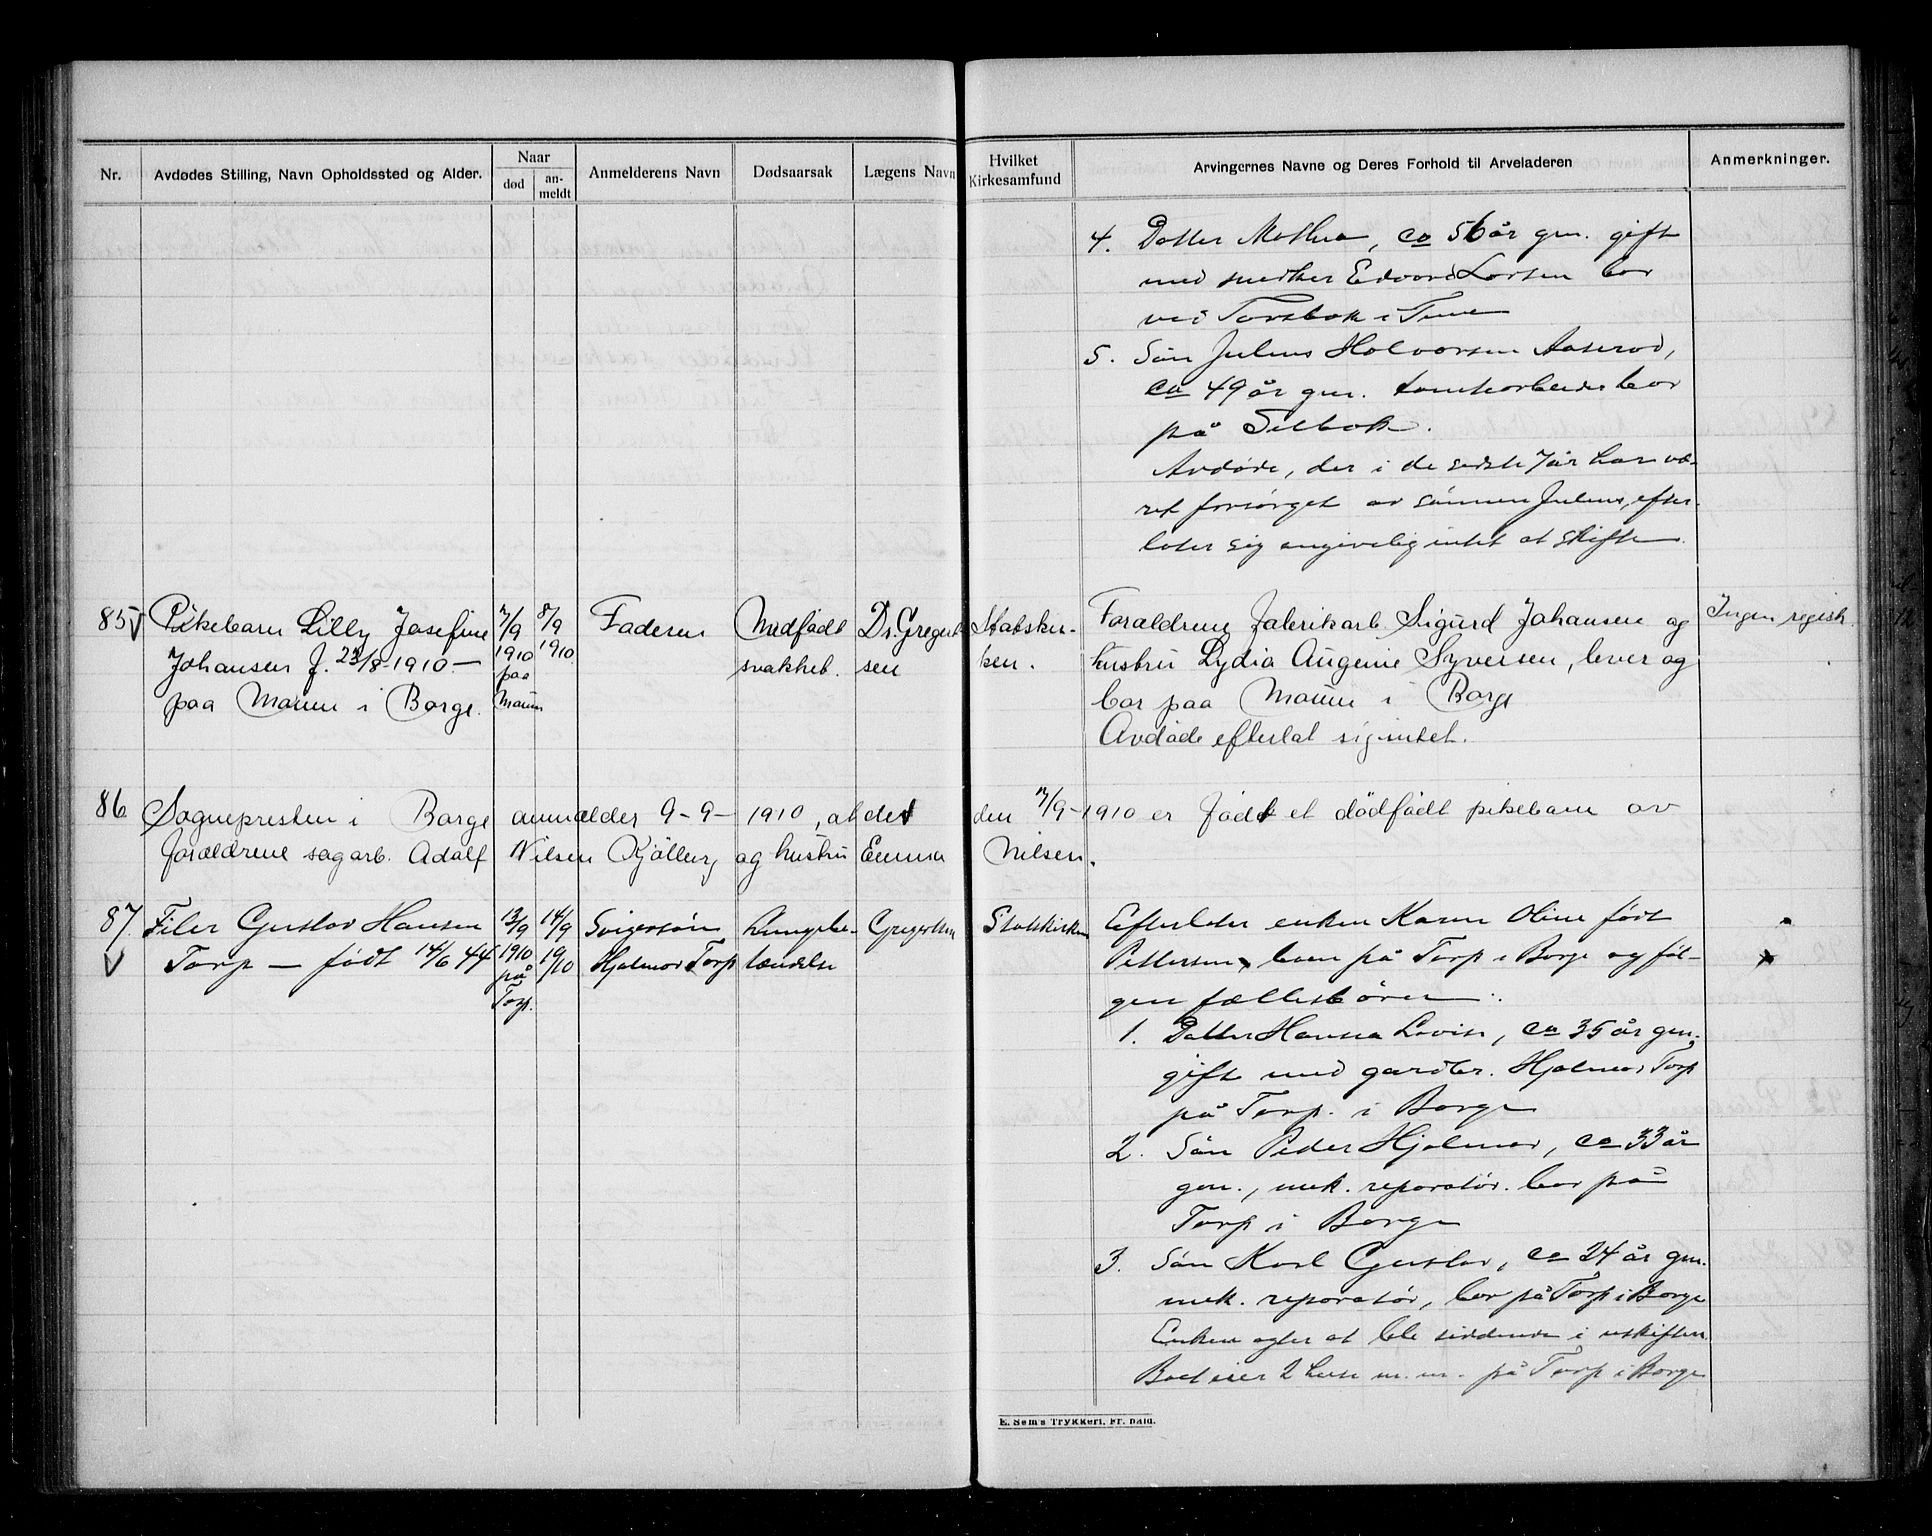 Nr.
Avdødes Stilling, Navn Opholdssted og Alder.
Naar
død
an-
meldt
Anmelderens Navn
Dødsaarsak
Lægens Navn
Hvilket
Kirkesamfund
Arvingernes Navne og Deres Forhold til Arveladeren
Anmerkninger.
4. Datter Mathea, ca 56 år gm. gift
med snedker Edvard Larsen bor
ved i Tune
5. Søn Julius Halvorsen Aaserød,
ca 49 år gm. bor
på Selbak.
Avdøde, der i de sidste 7 år har væ-
ret forsørget av sønnen Julius, efter-
later sig angivelig intet at skifte
85 Pikebarn Lilly Josefine
Johansen f. 23/8-1910 —
paa Moum i Borge.
7/9
1910
paa
Moum
8/9
1910
Faderen
Medfødt
svakhet.
Dr. Gregert
sen
Statskir-
ken.
Forældrene Fabrikarb. Sigurd Johansen og
hustru Lydia Augenie Syversen, lever og
bor paa Moum i Borge
Avdøde efterlat sig intet.
Ingen registr.
86 Sognepresten i Borge anmelder 9-9-1910, at det den 7/9-1910 er født et dødfødt pikebarn av
forældrene sagarb. Adolf Nilsen Kjølberg og hustru Emma Nilsen.
87. Filer Gustav Hansen
Torp — født 14/6 44
13/9
1910
på
Torp.
14/9
19/10
Svigersøn
Hjalmar Torp
Lungebe-
tændelse
Gregertsen
Statskirken
Efterlater enken Karen Oline født
Pettersen, boen på Torp i Borge og føl-
gen fællesbörn:
1. Datter Hansea Lovise, ca 35 år gm.
gift med gardbr. Hjalmar Torp
på Torp. i Borge
2. Søn Peder Hjalmar, ca 33 år
gm., mek. reparatør. bor på
Torp i Borge
3. Søn Karl Gustav, ca 24 år gm.
mek. reparatør, bor på Torp i Borge
Enken agter at bli siddende i uskiftet
Bo eier 2 huse m.m. på Torp i Borge
E. Sem's Trykkeri, Fr. hald.